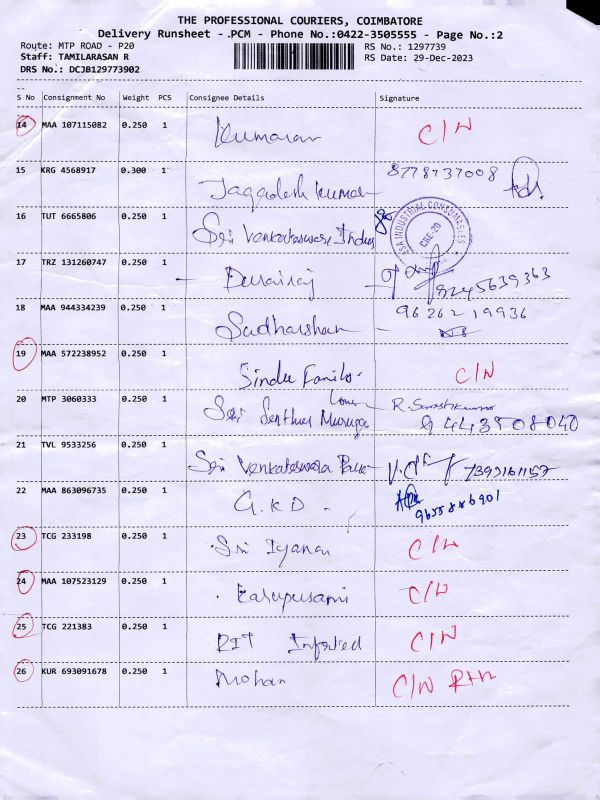 THE PROFESSIONAL COURIERS, COIMBATORE
Delivery Runsheet - .PCM - Phone No.:0422-3505555 - Page No.:2
Route: MTP ROAD - P20 RS No.: 1297739
Staff: TAMILARASAN R RS Date: 29-Dec-2023
DRS No.: DCJB129773902
S No Consignment No Weight PCS Consignee Details Signature
14 MAA 107115082 0.250 1 Kumaran C/N
15 KRG 4568917 0.300 1 Jagadesh kumar 8778737008
16 TUT 6665806 0.250 1 Sri Venkateswara Indus
SSA INDUSTRIAL CONSUMABLES CBE-29
17 TRZ 131260747 0.250 1 Durairaj 9245639363
18 MAA 944334239 0.250 1 Sudharshan 9626219936
19 MAA 572238952 0.250 1 Sindu C/N
20 MTP 3060333 0.250 1 Sri Senthur Muruga 9443508040
21 TVL 9533256 0.250 1 Sri Venkateswara 7395161157
22 MAA 863096735 0.250 1 G.K.D - 9655886901
23 TCG 233198 0.250 1 Sri Iyanar C/N
24 MAA 107523129 0.250 1 Karupusami C/N
25 TCG 221383 0.250 1 C/N
26 KUR 693091678 0.250 1 Mohan C/N Rtn